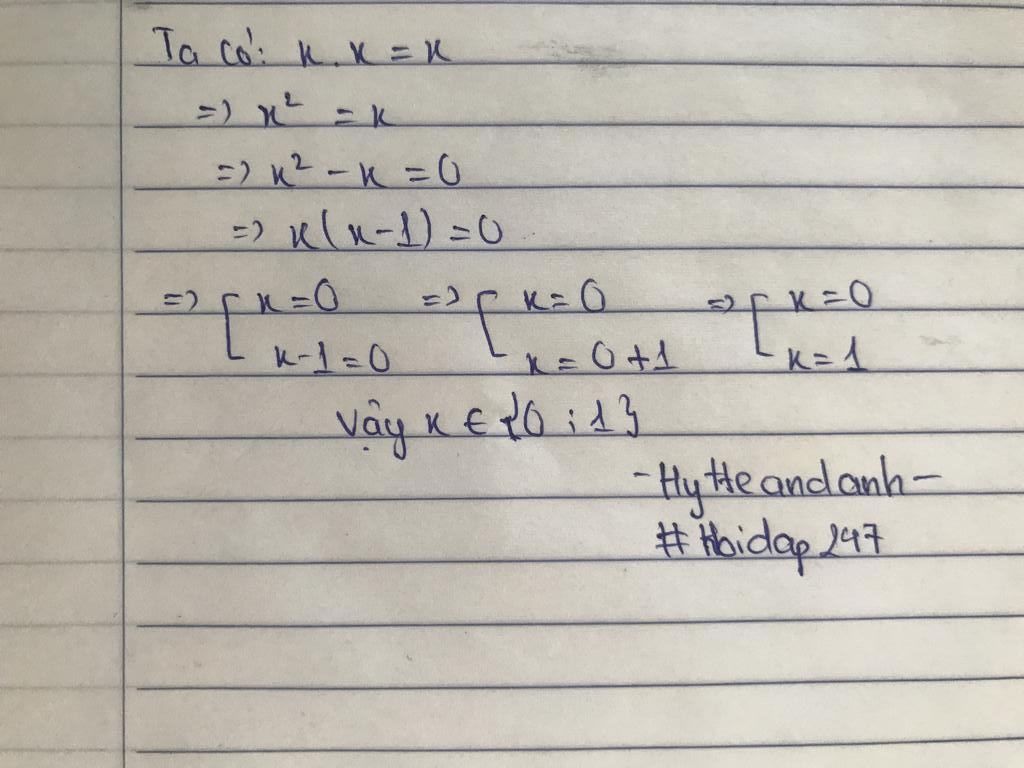 Ta có: x . x = x
=> x² = x
=> x² - x = 0
=> x(x-1) = 0
=> [ x = 0 => [ x = 0 => [ x = 0
x-1 = 0 x = 0+1 x = 1
Vậy x ∈ {0 ; 1}
- HyHeandanh -
# Hoidap247